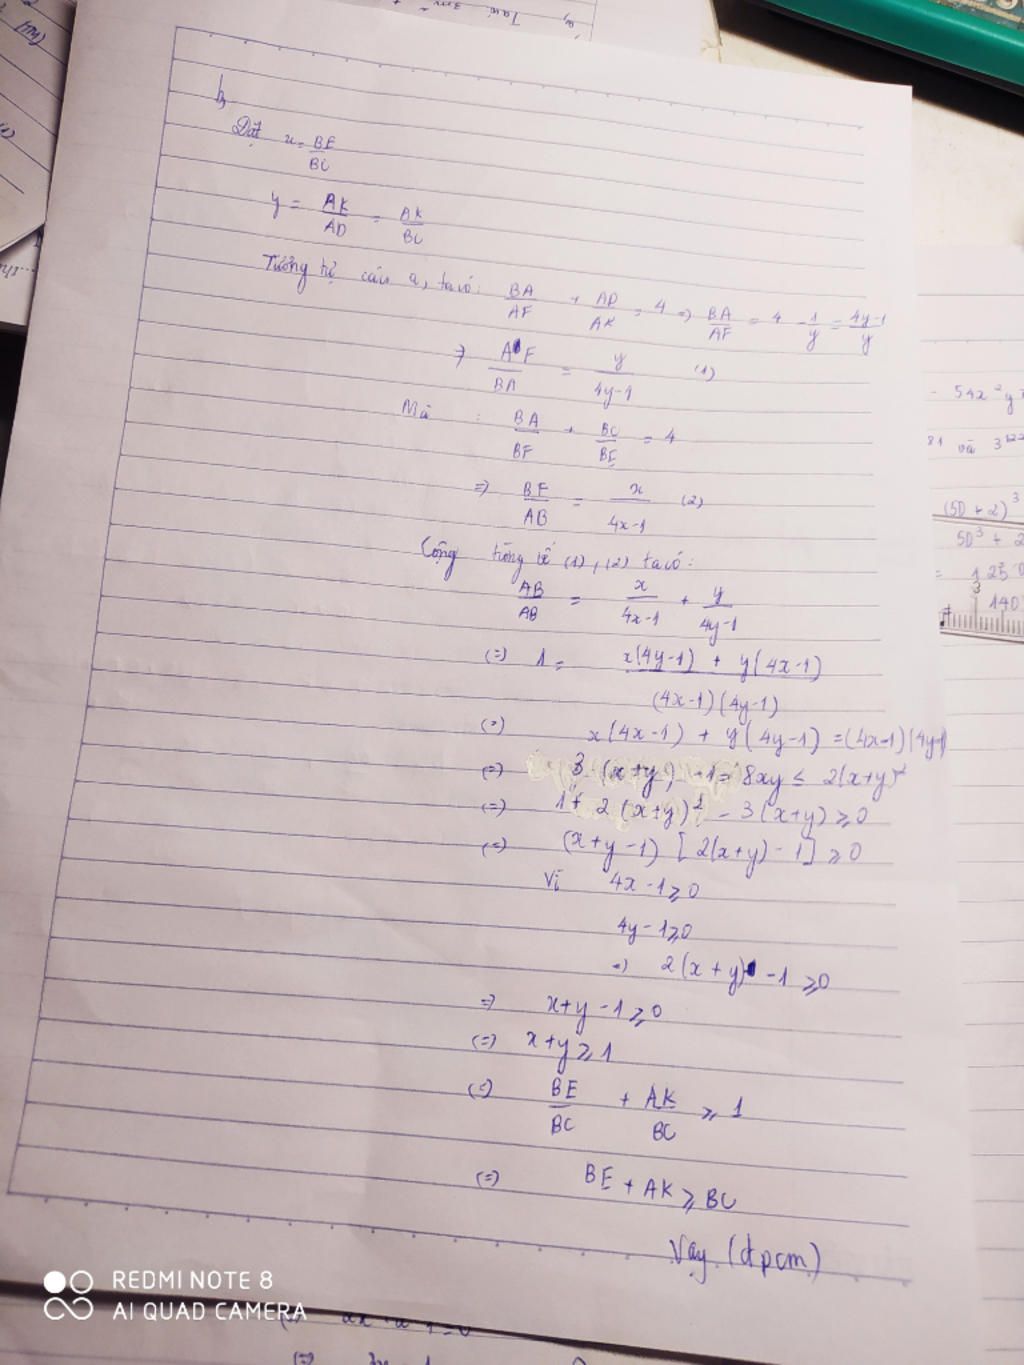 b,
Đặt x = BE/BC
y = AK/AD = AK/BC
Tương tự câu a, ta có: BA/AF + AD/AK = 4 => BA/AF = 4 - 1/y = (4y-1)/y
=> AF/BA = y/(4y-1) (1)
Mà : BA/BF + BC/BE = 4
=> BF/AB = x/(4x-1) (2)
Cộng từng vế (1), (2) ta có:
AB/AB = x/(4x-1) + y/(4y-1)
(=) 1 = (x(4y-1) + y(4x-1))/((4x-1)(4y-1))
(=) x(4x-1) + y(4y-1) = (4x-1)(4y-1)
(=) 3(x+y) - 1 = 8xy ≤ 2(x+y)²
(=) 1 + 2(x+y)² - 3(x+y) ≥ 0
(=) (x+y-1) [2(x+y) - 1] ≥ 0
Vì 4x-1 ≥ 0
4y-1 ≥ 0
=) 2(x+y) - 1 ≥ 0
=> x+y-1 ≥ 0
(=) x+y ≥ 1
(=) BE/BC + AK/BC ≥ 1
(=) BE + AK ≥ BC
Vậy (đpcm)
- 54x²y
81 và 3
(50 + 2)³
50³ +
= 1250
140
REDMI NOTE 8
AI QUAD CAMERA